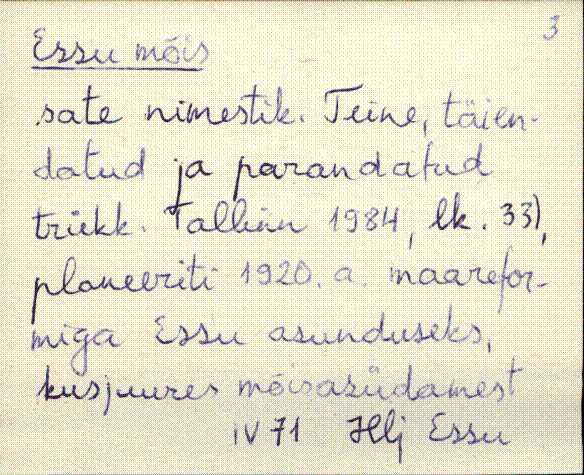 3
Essu mõis
sate nimestik. Teine, täien-
datud ja parandatud
trükk. Tallinn 1984, lk. 33),
planeeriti 1920. a. maarefor-
miga Essu asunduseks,
kusjuures mõisasüdamest
IV 71 Hlj Essu